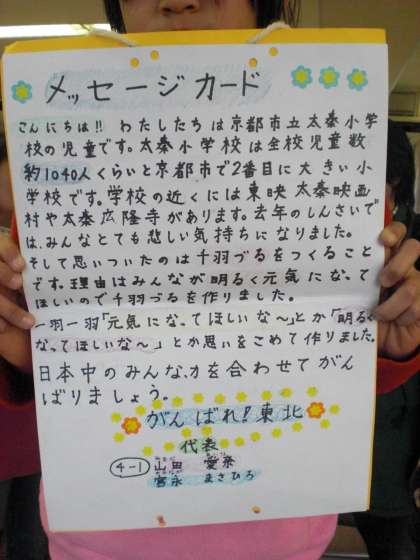 メッセージカード
こんにちは!! わたしたちは京都市立太秦小学
校の児童です。太秦小学校は全校児童数
約1040人くらいと京都市で2番目に大きい小
学校です。学校の近くには東映太秦映画
村や太秦広隆寺があります。去年のしんさいで
は、みんなとても悲しい気持ちになりました。
そして思いついたのは千羽づるをつくること
です。理由はみんなが明るく元気になって
ほしいので千羽づるを作りました。
一羽一羽「元気になってほしいな〜」とか「明るく
なってほしいな〜」とか思いをこめて作りました。
日本中のみんな、力を合わせてがん
ばりましょう。
がんばれ!東北
代表
4-1 山田 愛奈
宮永 まさひろ